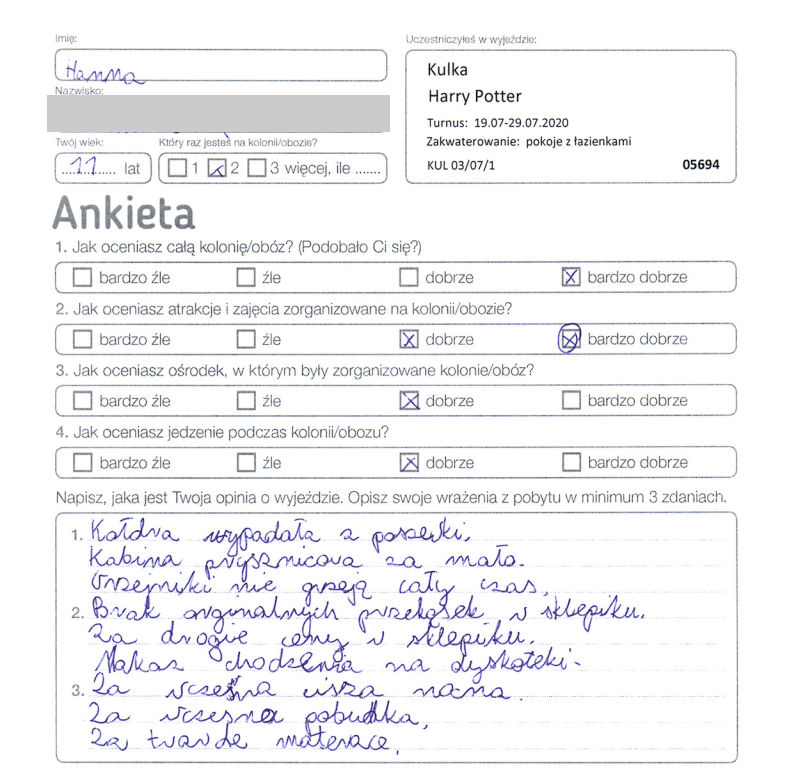 Imię:
Hanna
Uczestniczyłeś w wyjeździe:
Kulka
Harry Potter
Turnus: 19.07-29.07.2020
Zakwaterowanie: pokoje z łazienkami
KUL 03/07/1 05694
Nazwisko:
Twój wiek:
11 lat
Który raz jesteś na kolonii/obozie?
1 2 3 więcej, ile .......
Ankieta
1. Jak oceniasz całą kolonię/obóz? (Podobało Ci się?)
bardzo źle źle dobrze bardzo dobrze
2. Jak oceniasz atrakcje i zajęcia zorganizowane na kolonii/obozie?
bardzo źle źle dobrze bardzo dobrze
3. Jak oceniasz ośrodek, w którym były zorganizowane kolonie/obóz?
bardzo źle źle dobrze bardzo dobrze
4. Jak oceniasz jedzenie podczas kolonii/obozu?
bardzo źle źle dobrze bardzo dobrze
Napisz, jaka jest Twoja opinia o wyjeździe. Opisz swoje wrażenia z pobytu w minimum 3 zdaniach.
1. Kołdra wypadała z poszewki.
Kabina prysznicova za mała.
Grzejniki nie grzeją cały czas.
2. Brak orginalnych przekąsek v sklepiku.
Za drogie ceny v sklepiku.
Nakaz chodzenia na dyskoteki.
3. Za vczesna cisza nocna.
Za vczesna pobudka.
Za tvarde materace.